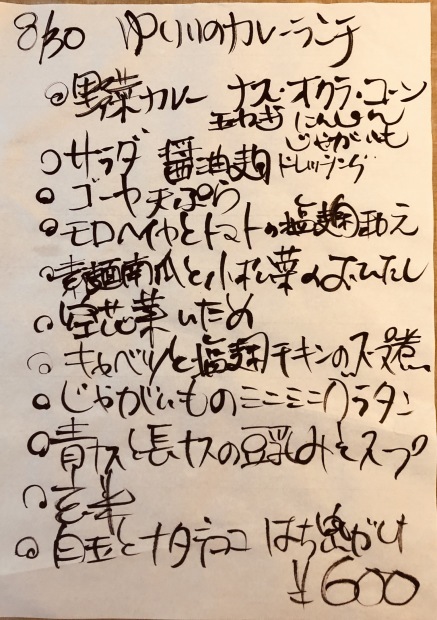 8/30 ゆいいのカレーランチ
野菜カレー ナス・オクラ・コーン
玉ねぎ にんじん
じゃがいも
サラダ 醤油麹ドレッシング
ゴーヤ天ぷら
モロヘイヤとトマトの塩麹和え
素麺南瓜と小松菜のおひたし
空芯菜いため
キャベツと塩麹チキンのスープ煮
じゃがいものミニミニグラタン
青ナスと長ナスの豆乳みそスープ
玄米
白玉とナタデココ はち蜜がけ
¥600